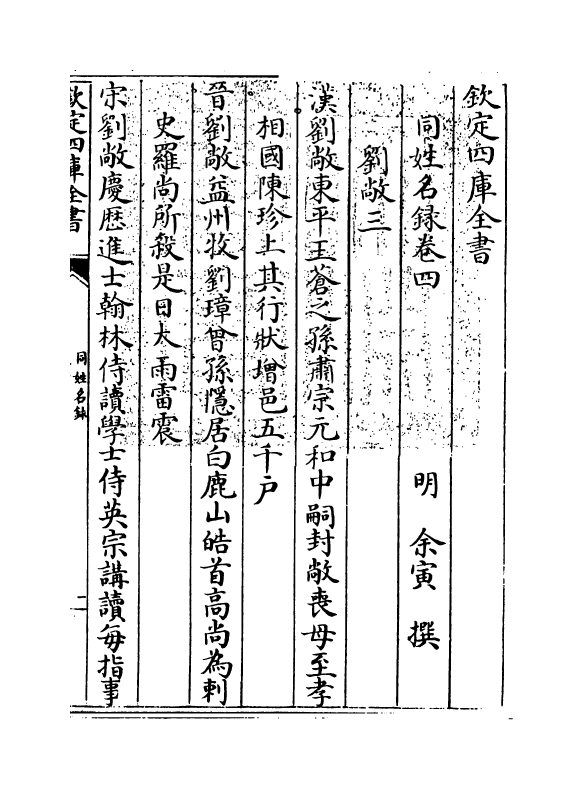 欽定四庫全書
同姓名録卷四　　　　明　余寅　撰
劉敞三
漢劉敞東平王蒼之孫肅宗元和中嗣封敞喪母至孝
相國陳珍上其行狀增邑五千户
晉劉敞益州牧劉璋曾孫隱居白鹿山皓首高尚為刺
史羅尚所殺是日大雨雷震
宋劉敞慶歴進士翰林侍讀學士侍英宗講讀每指事
欽定四庫全書
同姓名録
一